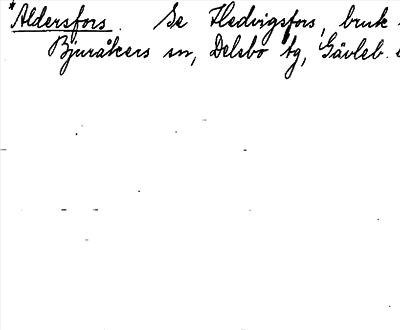 *Aldersfors. Se Hedvigsfors, bruk
Bjuråkers sn, Delsbo tg, Gävleb.